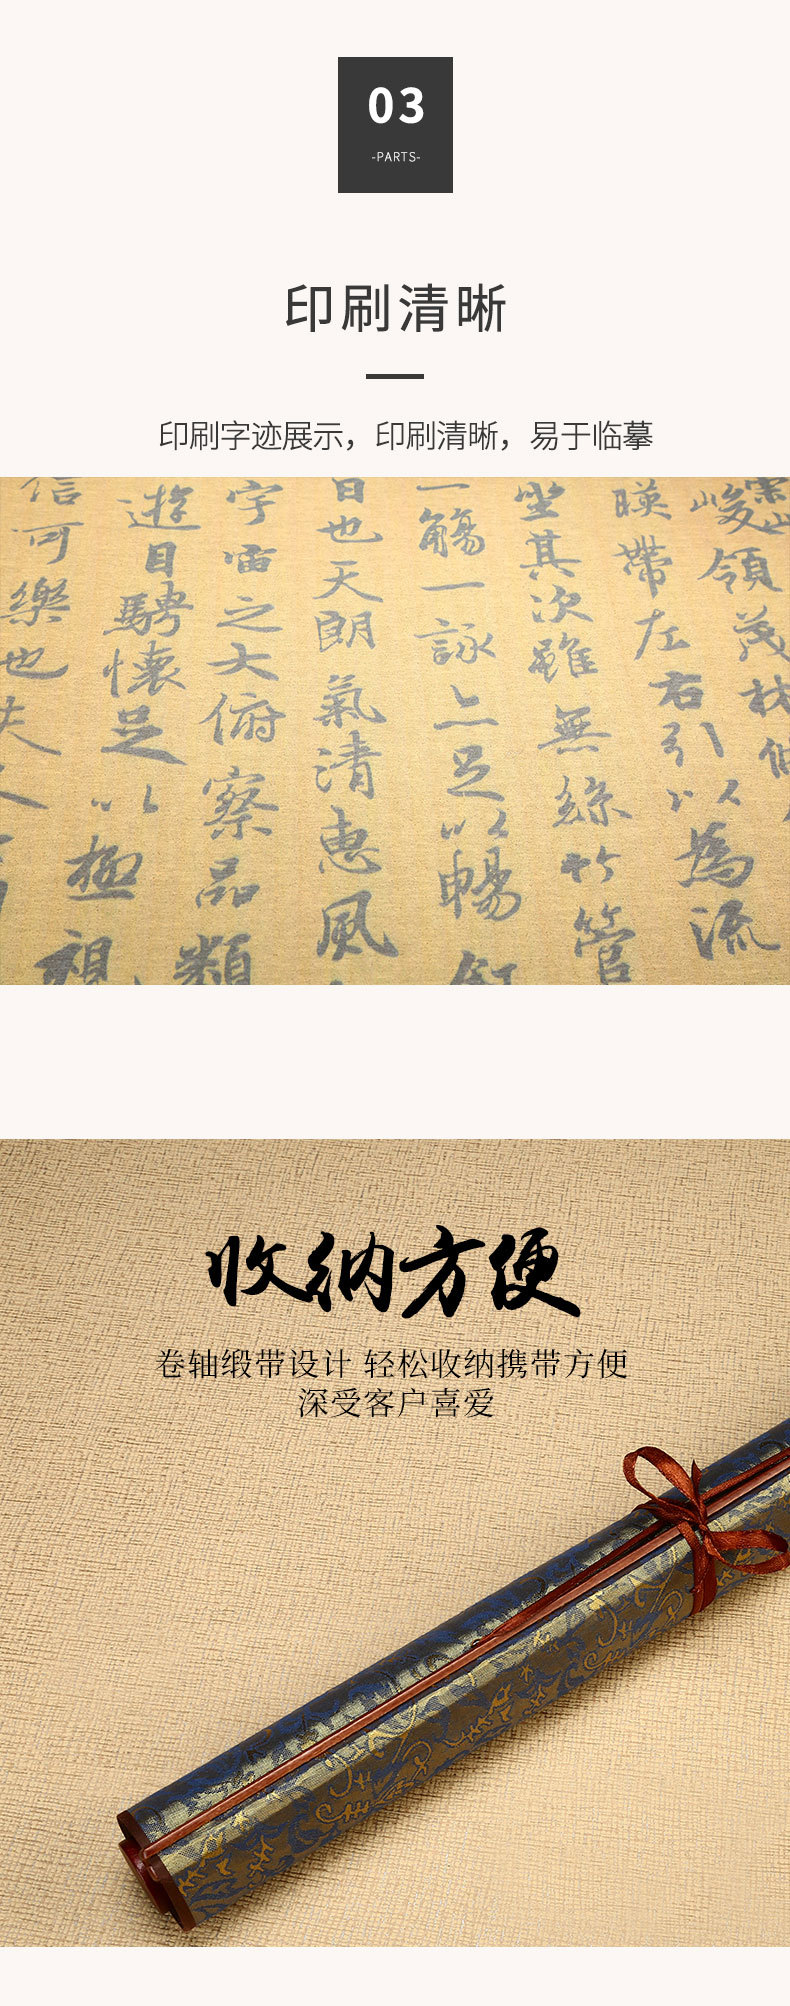 03
-PARTS-
印刷清晰
印刷字迹展示，印刷清晰，易于临摹
崇山峻領茂林
暎帶左右引以為流
坐其次雖無絲竹管
一觴一詠亦足以暢
日也天朗氣清惠風
宇宙之大俯察品類
遊目騁懷足以極視
信可樂也夫人
收纳方便
卷轴缎带设计 轻松收纳携带方便
深受客户喜爱